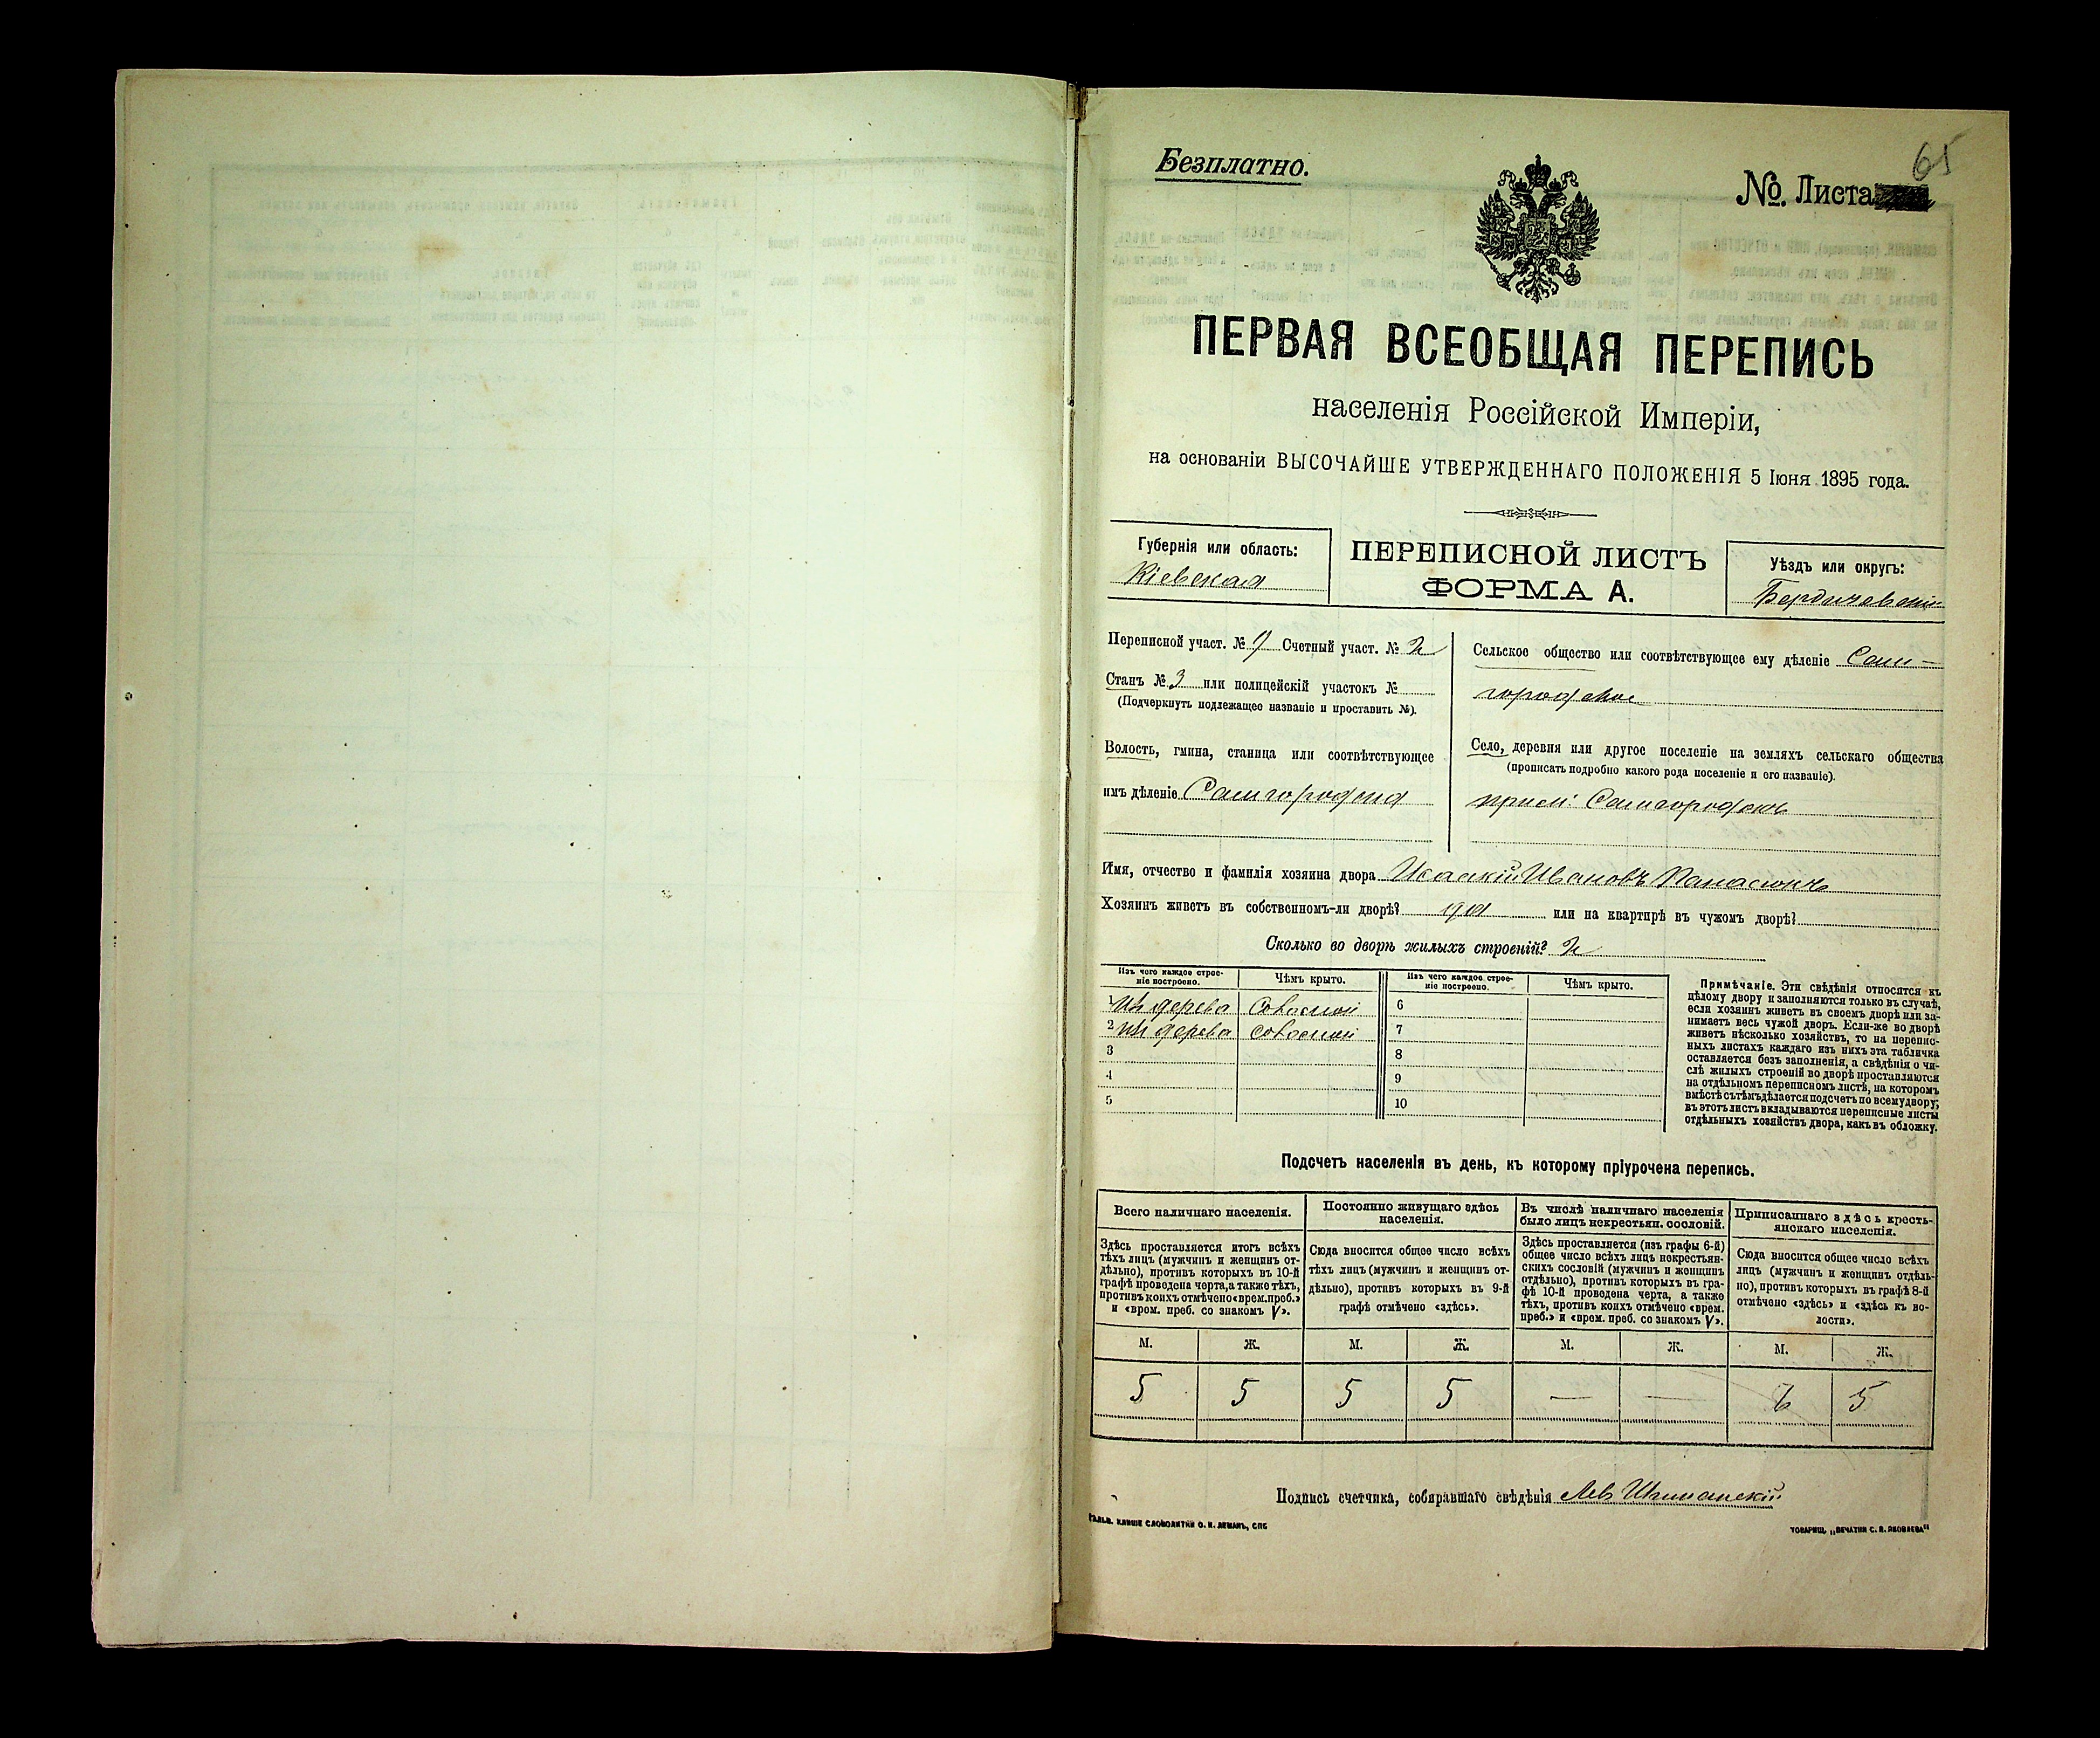 Безплатно.
65
№. Листа
ПЕРВАЯ ВСЕОБЩАЯ ПЕРЕПИСЬ
населенія Россійской Имперіи,
на основаніи ВЫСОЧАЙШЕ УТВЕРЖДЕННАГО ПОЛОЖЕНІЯ 5 Іюня 1895 года.
Губернія или область:
Кіевская
ПЕРЕПИСНОЙ ЛИСТЪ
ФОРМА А.
Уѣздъ или округъ:
Бердичевскій
Переписной участ. № Счетный участ. № 2
Станъ № 3 или полицейскій участокъ №
(Подчеркнуть подлежащее названіе и проставить №).
Волость, гмина, станица или соотвѣтствующее
имъ дѣленіе Самгородска
Сельское общество или соотвѣтствующее ему дѣленіе Сам-
городское
Село, деревня или другое поселеніе на земляхъ сельскаго общества
(прописать подробно какого рода поселеніе и его названіе).
Самгородокъ
Имя, отчество и фамилія хозяина двора Исаакій Ивановъ Панасюкъ
Хозяинъ живетъ въ собственномъ-ли дворѣ? да или на квартирѣ въ чужомъ дворѣ?
Сколько во дворѣ жилыхъ строеній? 2
Изъ чего каждое строе-
ніе построено.
Чѣмъ крыто.
Изъ чего каждое строе-
ніе построено.
Чѣмъ крыто.
1 изъ дерева соломой 6
2 изъ дерева соломой 7
3 8
4 9
5 10
Примѣчаніе. Эти свѣдѣнія относятся къ
цѣлому двору и заполняются только въ случаѣ,
если хозяинъ живетъ въ своемъ дворѣ или за-
нимаетъ весь чужой дворъ. Если-же во дворѣ
живетъ нѣсколько хозяйствъ, то на перепис-
ныхъ листахъ каждаго изъ нихъ эта табличка
оставляется безъ заполненія, а свѣдѣнія о чи-
слѣ жилыхъ строеній во дворѣ проставляются
на отдѣльномъ переписномъ листѣ, на которомъ
вмѣстѣ съ тѣмъ дѣлается подсчетъ по всему двору;
въ этотъ листъ вкладываются переписные листы
отдѣльныхъ хозяйствъ двора, какъ въ обложку.
Подсчетъ населенія въ день, къ которому пріурочена перепись.
Всего наличнаго населенія.
Здѣсь проставляется итогъ всѣхъ
тѣхъ лицъ (мужчинъ и женщинъ от-
дѣльно), противъ которыхъ въ 10-й
графѣ проведена черта, а также тѣхъ,
противъ коихъ отмѣчено «врем. преб.»
и «врем. преб. со знакомъ V».
Постоянно живущаго здѣсь
населенія.
Сюда вносится общее число всѣхъ
тѣхъ лицъ (мужчинъ и женщинъ от-
дѣльно), противъ которыхъ въ 9-й
графѣ отмѣчено «здѣсь».
Въ числѣ наличнаго населенія
было лицъ некрестьян. сословій.
Здѣсь проставляется (изъ графы 6-й)
общее число всѣхъ лицъ некрестьян-
скихъ сословій (мужчинъ и женщинъ
отдѣльно), противъ которыхъ въ гра-
фѣ 10-й проведена черта, а также
тѣхъ, противъ коихъ отмѣчено «врем.
преб.» и «врем. преб. со знакомъ V».
Приписаннаго здѣсь кресть-
янскаго населенія.
Сюда вносится общее число всѣхъ
лицъ (мужчинъ и женщинъ отдѣль-
но), противъ которыхъ въ графѣ 8-й
отмѣчено «здѣсь» и «здѣсь къ во-
лости».
М. Ж. М. Ж. М. Ж. М. Ж.
5 5 5 5 — — 6 5
Подпись счетчика, собиравшаго свѣдѣнія
ГАЛЬВ. КЛИШЕ СЛОВОЛИТНИ О. И. ЛЕМАНЪ, СПБ
ТОВАРИЩ. „ПЕЧАТНИ С. П. ЯКОВЛЕВА"